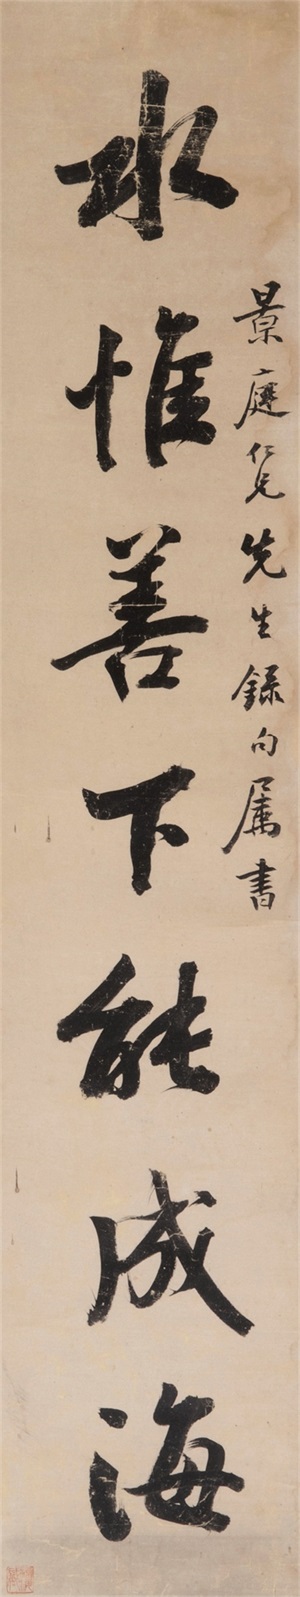 景庭仁兄先生録句属書
水惟善下能成海